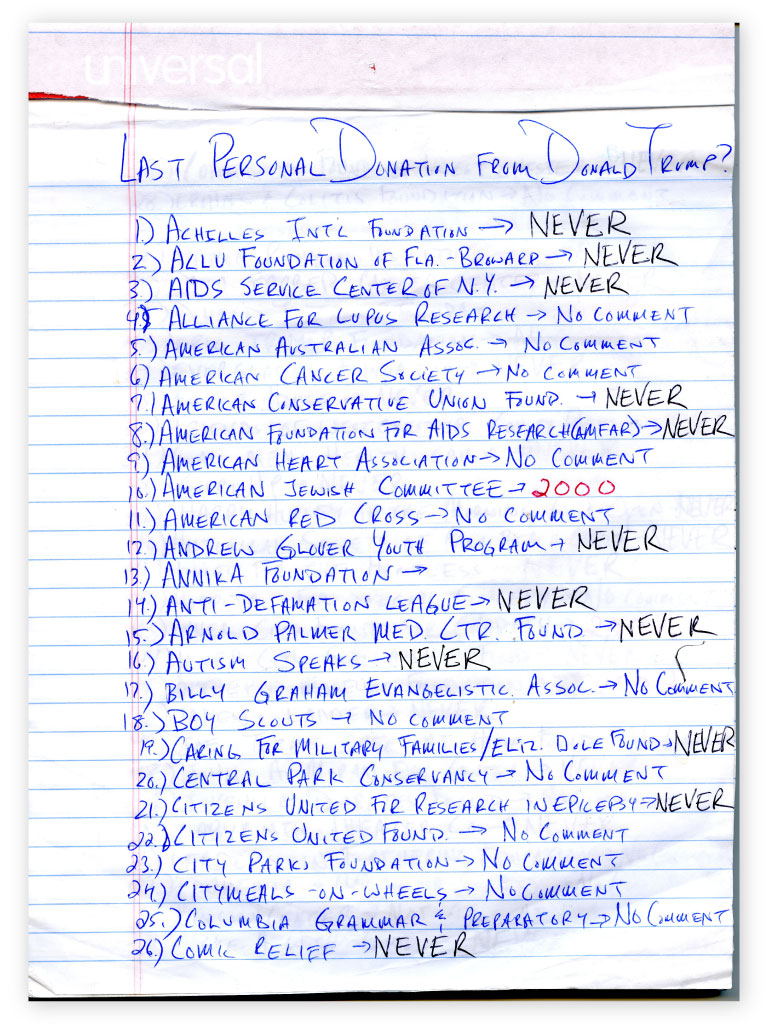 universal
LAST PERSONAL DONATION FROM DONALD TRUMP?
1.) ACHILLES INT'L FOUNDATION → NEVER
2.) ALLU FOUNDATION OF FLA.-BROWARD → NEVER
3.) AIDS SERVICE CENTER OF N.Y. → NEVER
4.) ALLIANCE FOR LUPUS RESEARCH → NO COMMENT
5.) AMERICAN AUSTRALIAN ASSOC. → NO COMMENT
6.) AMERICAN CANCER SOCIETY → NO COMMENT
7.) AMERICAN CONSERVATIVE UNION FOUND. → NEVER
8.) AMERICAN FOUNDATION FOR AIDS RESEARCH (AMFAR) → NEVER
9.) AMERICAN HEART ASSOCIATION → NO COMMENT
10.) AMERICAN JEWISH COMMITTEE → 2000
11.) AMERICAN RED CROSS → NO COMMENT
12.) ANDREW GLOVER YOUTH PROGRAM → NEVER
13.) ANNIKA FOUNDATION →
14.) ANTI-DEFAMATION LEAGUE → NEVER
15.) ARNOLD PALMER MED. CTR. FOUND → NEVER
16.) AUTISM SPEAKS → NEVER
17.) BILLY GRAHAM EVANGELISTIC ASSOC. → NO COMMENT
18.) BOY SCOUTS → NO COMMENT
19.) CARING FOR MILITARY FAMILIES/ELIZ. DOLE FOUND → NEVER
20.) CENTRAL PARK CONSERVANCY → NO COMMENT
21.) CITIZENS UNITED FOR RESEARCH IN EPILEPSY → NEVER
22.) CITIZENS UNITED FOUND. → NO COMMENT
23.) CITY PARKS FOUNDATION → NO COMMENT
24.) CITYMEALS-ON-WHEELS → NO COMMENT
25.) COLUMBIA GRAMMAR & PREPARATORY → NO COMMENT
26.) COMIC RELIEF → NEVER